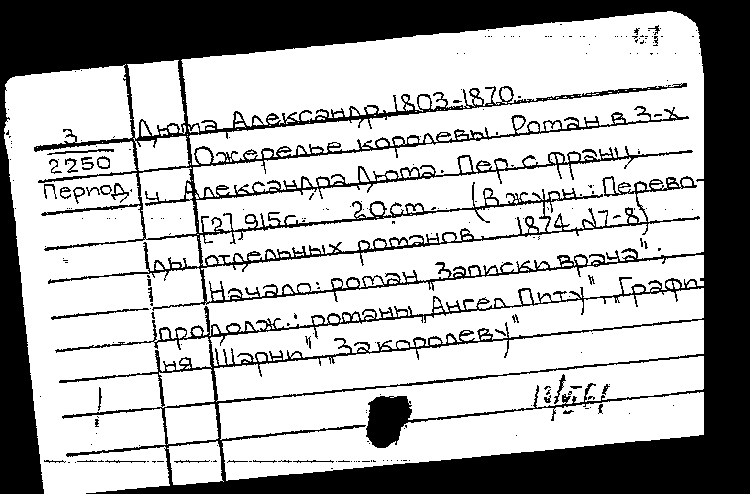 67
Дюма, Александр, 1803-1870.
3
2250
Период.
Ожерелье королевы. Роман в 3-х
ч Александра Дюма. Пер. с франц.
[2], 915с. 20см. (В журн.: Перево-
ды отдельных романов. 1874, №7-8)
Начало: роман „Записки врача";
продолж.: романы „Ангел Питу", „Графи-
ня Шарни", „За королеву".
13/VI 61